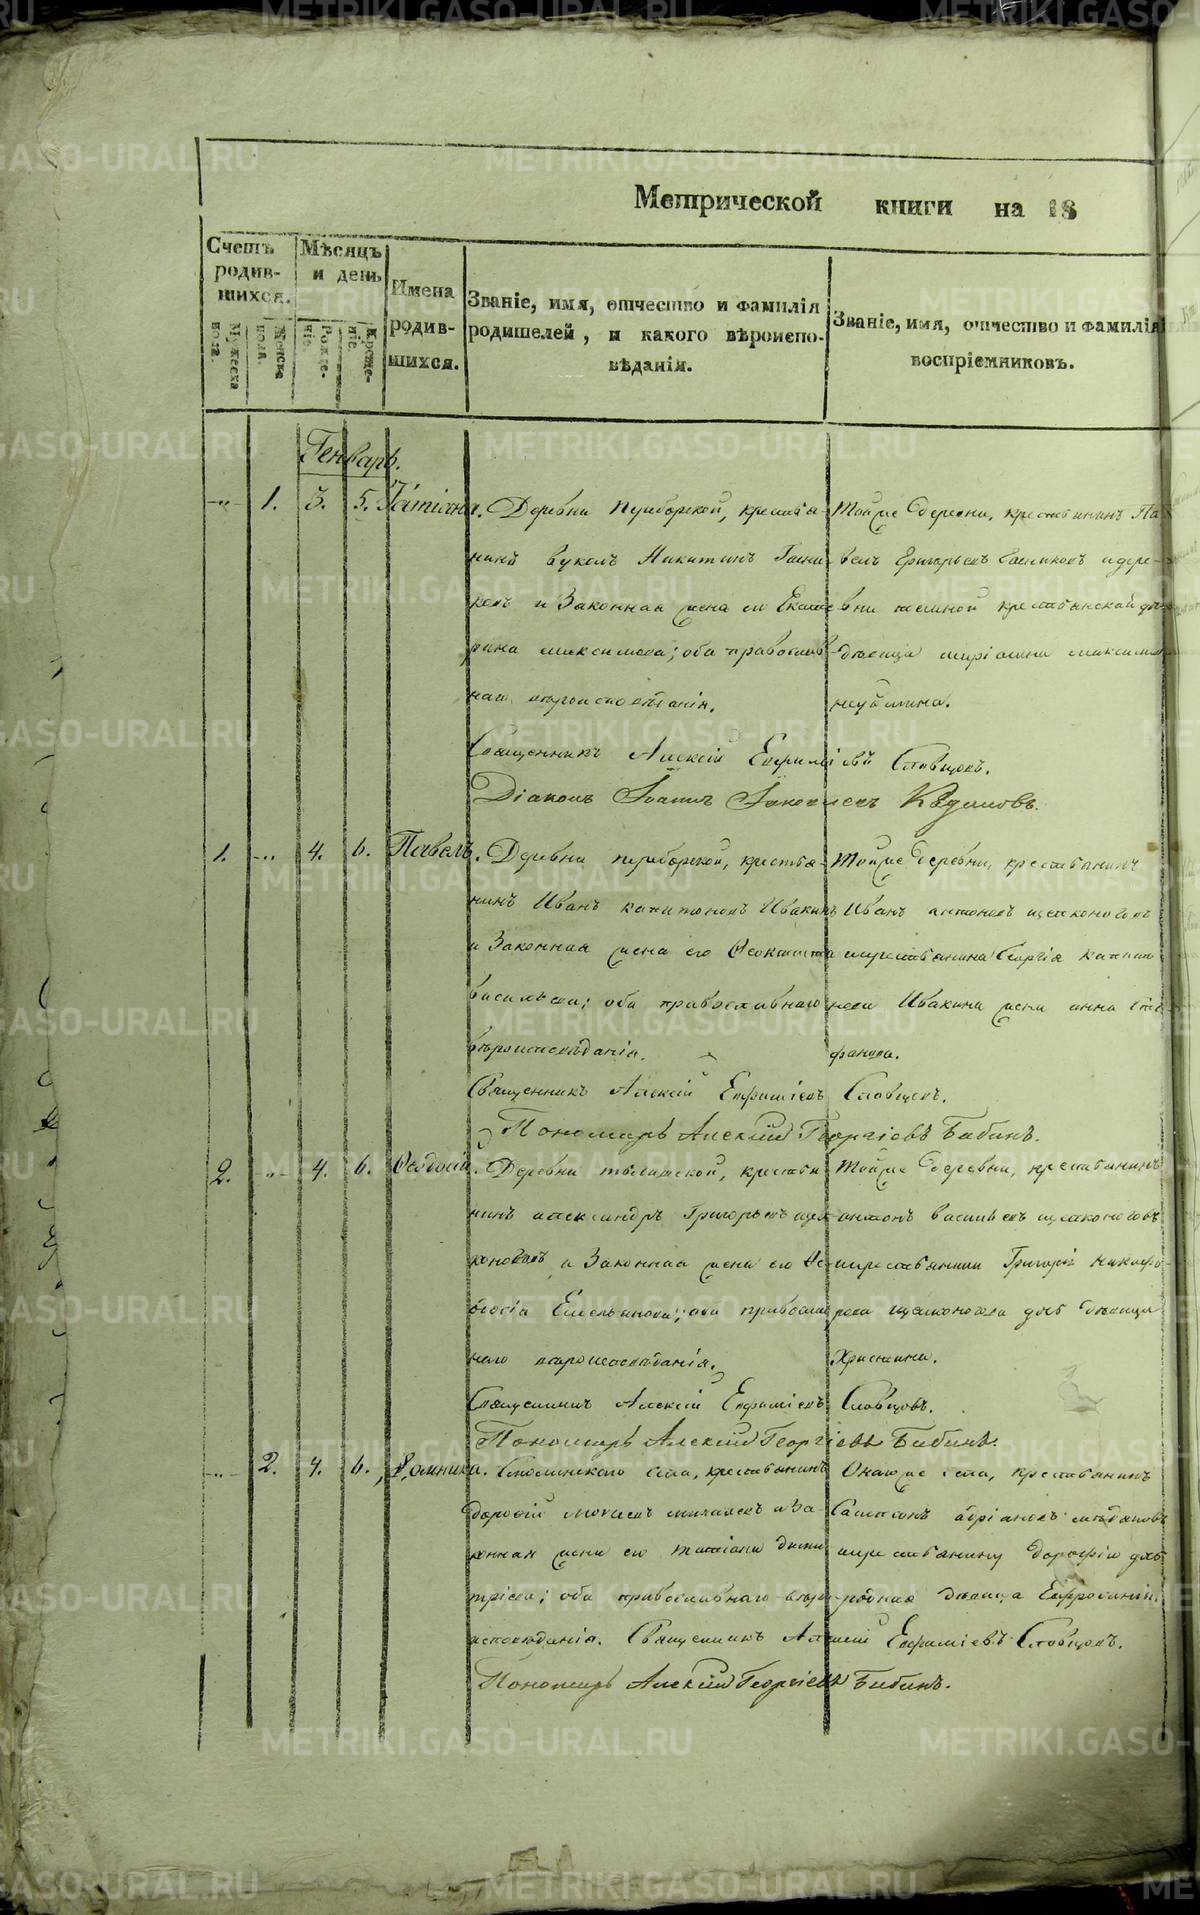 Метрической книги на 18
Счетъ родив-шихся.
Мужеска пола.
Женска пола.
Мѣсяцъ и день
Рожде-нія.
Креще-нія.
Имена родив-шихся.
Званіе, имя, отчество и фамилія
родителей, и какого вѣроиспо-
вѣданія.
Званіе, имя, отчество и фамилія
воспріемниковъ.
Генварь.
1. 3. 5. Татіана.
Деревни Переборской, крестья-
нинъ Вуколъ Никитинъ
и Законная жена его Екате
рина Максимова; оба православ
наго вѣроисповѣданія.
Той же деревни, крестьянинъ Па
велъ Григорьевъ и дере-
вни крестьянской
дѣвица Максимо
Священникъ Алексій Евфиміевъ Словцовъ.
Діаконъ Іоаннъ Іаковлевъ
1. 4. 6. Павелъ.
Деревни Переборской, крестья-
нинъ Иванъ Капитоновъ Ивакинъ
и Законная жена его Феоктиста
Васильева; оба православнаго
вѣроисповѣданія.
Той же деревни, крестьянинъ
Иванъ Антоновъ Щелконоговъ
и крестьянина Георгія Капито
нова Ивакина жена Анна Сте-
фанова.
Священникъ Алексій Евфиміевъ Словцовъ.
Пономарь Алексій Георгіевъ Бабинъ.
2. 4. 6. Феодосій.
Деревни крестья
нинъ Александръ Григорьевъ Щел
коноговъ и Законная жена его Фе
одосія Емельянова; оба православ
наго вѣроисповѣданія.
Той же деревни, крестьянинъ
Антонъ Васильевъ Щелконоговъ
и крестьянина Григорія Никифо
рова Щелконогова дочь дѣвица
Христина.
Священникъ Алексій Евфиміевъ Словцовъ.
Пономарь Алексій Георгіевъ Бабинъ.
2. 4. 6. Домника.
села, крестьянинъ
Дорофій и За-
конная жена его Татіана Дими
тріева; оба православнаго вѣро
исповѣданія.
Онаго же села, крестьянинъ
Самсонъ Адріановъ
и крестьянину Дорофію дочь
родная дѣвица Евфросинія.
Священникъ Алексій Евфиміевъ Словцовъ.
Пономарь Алексій Георгіевъ Бабинъ.
METRIKI.GASO-URAL.RU